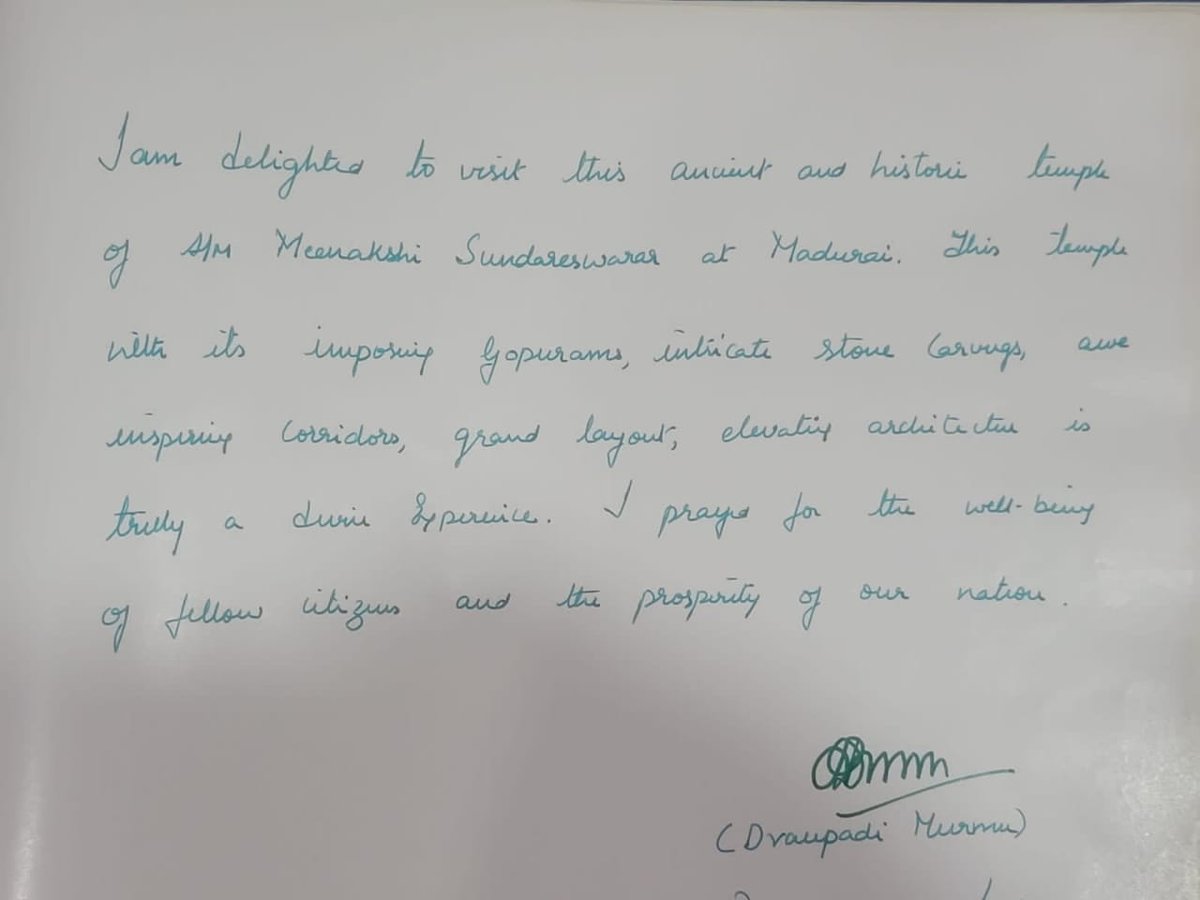 I am delighted to visit this ancient and historic temple
of A/M Meenakshi Sundareswarar at Madurai. This temple
with its imposing Gopurams, intricate stone Carvings, awe
inspiring Corridors, grand layout, elevating architecture is
truly a divine Experience. I prayed for the well-being
of fellow citizens and the prosperity of our nation.
(Draupadi Murmu)